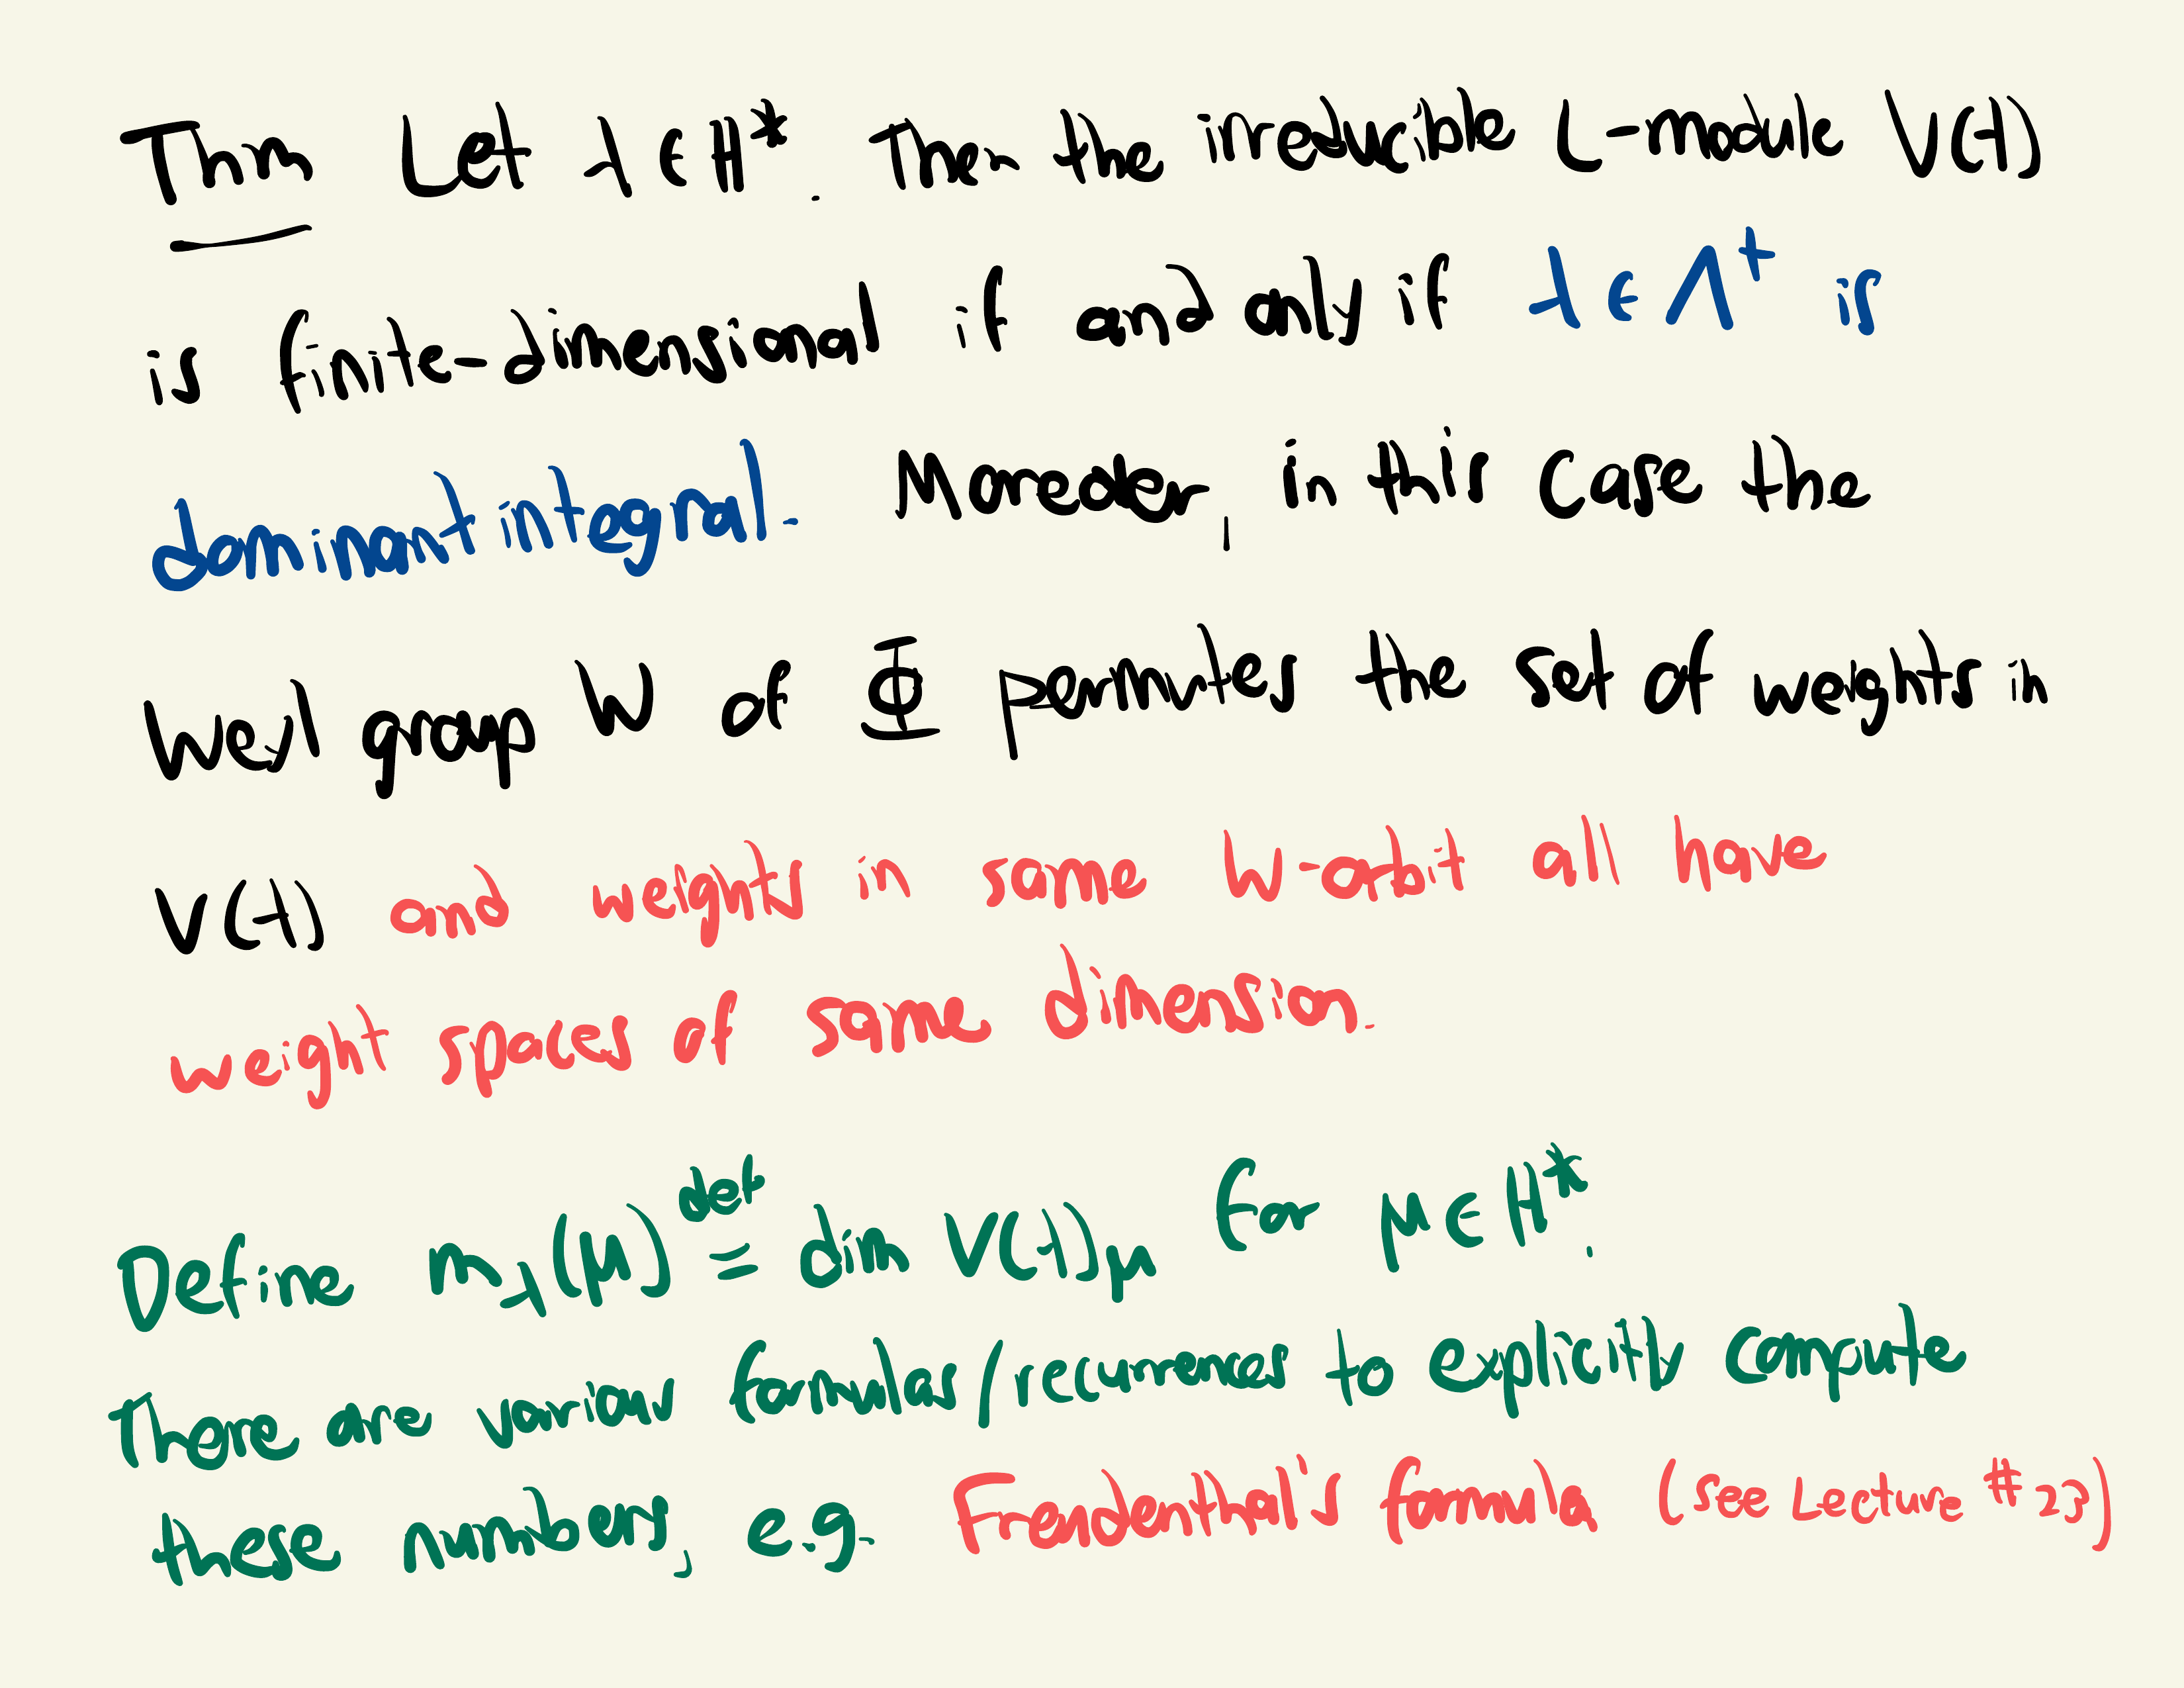 Thm Let λ ∈ H*. Then the irreducible L-module V(λ)
is finite-dimensional if and only if λ ∈ Λ⁺ is
dominant integral. Moreover, in this case the
Weyl group W of Φ permutes the set of weights in
V(λ) and weights in same W-orbit all have
weight spaces of same dimension.
Define m_λ(μ) def= dim V(λ)_μ for μ ∈ H*.
There are various formulas/recurrences to explicitly compute
these numbers, e.g. Freudenthal's formula (see Lecture #23)